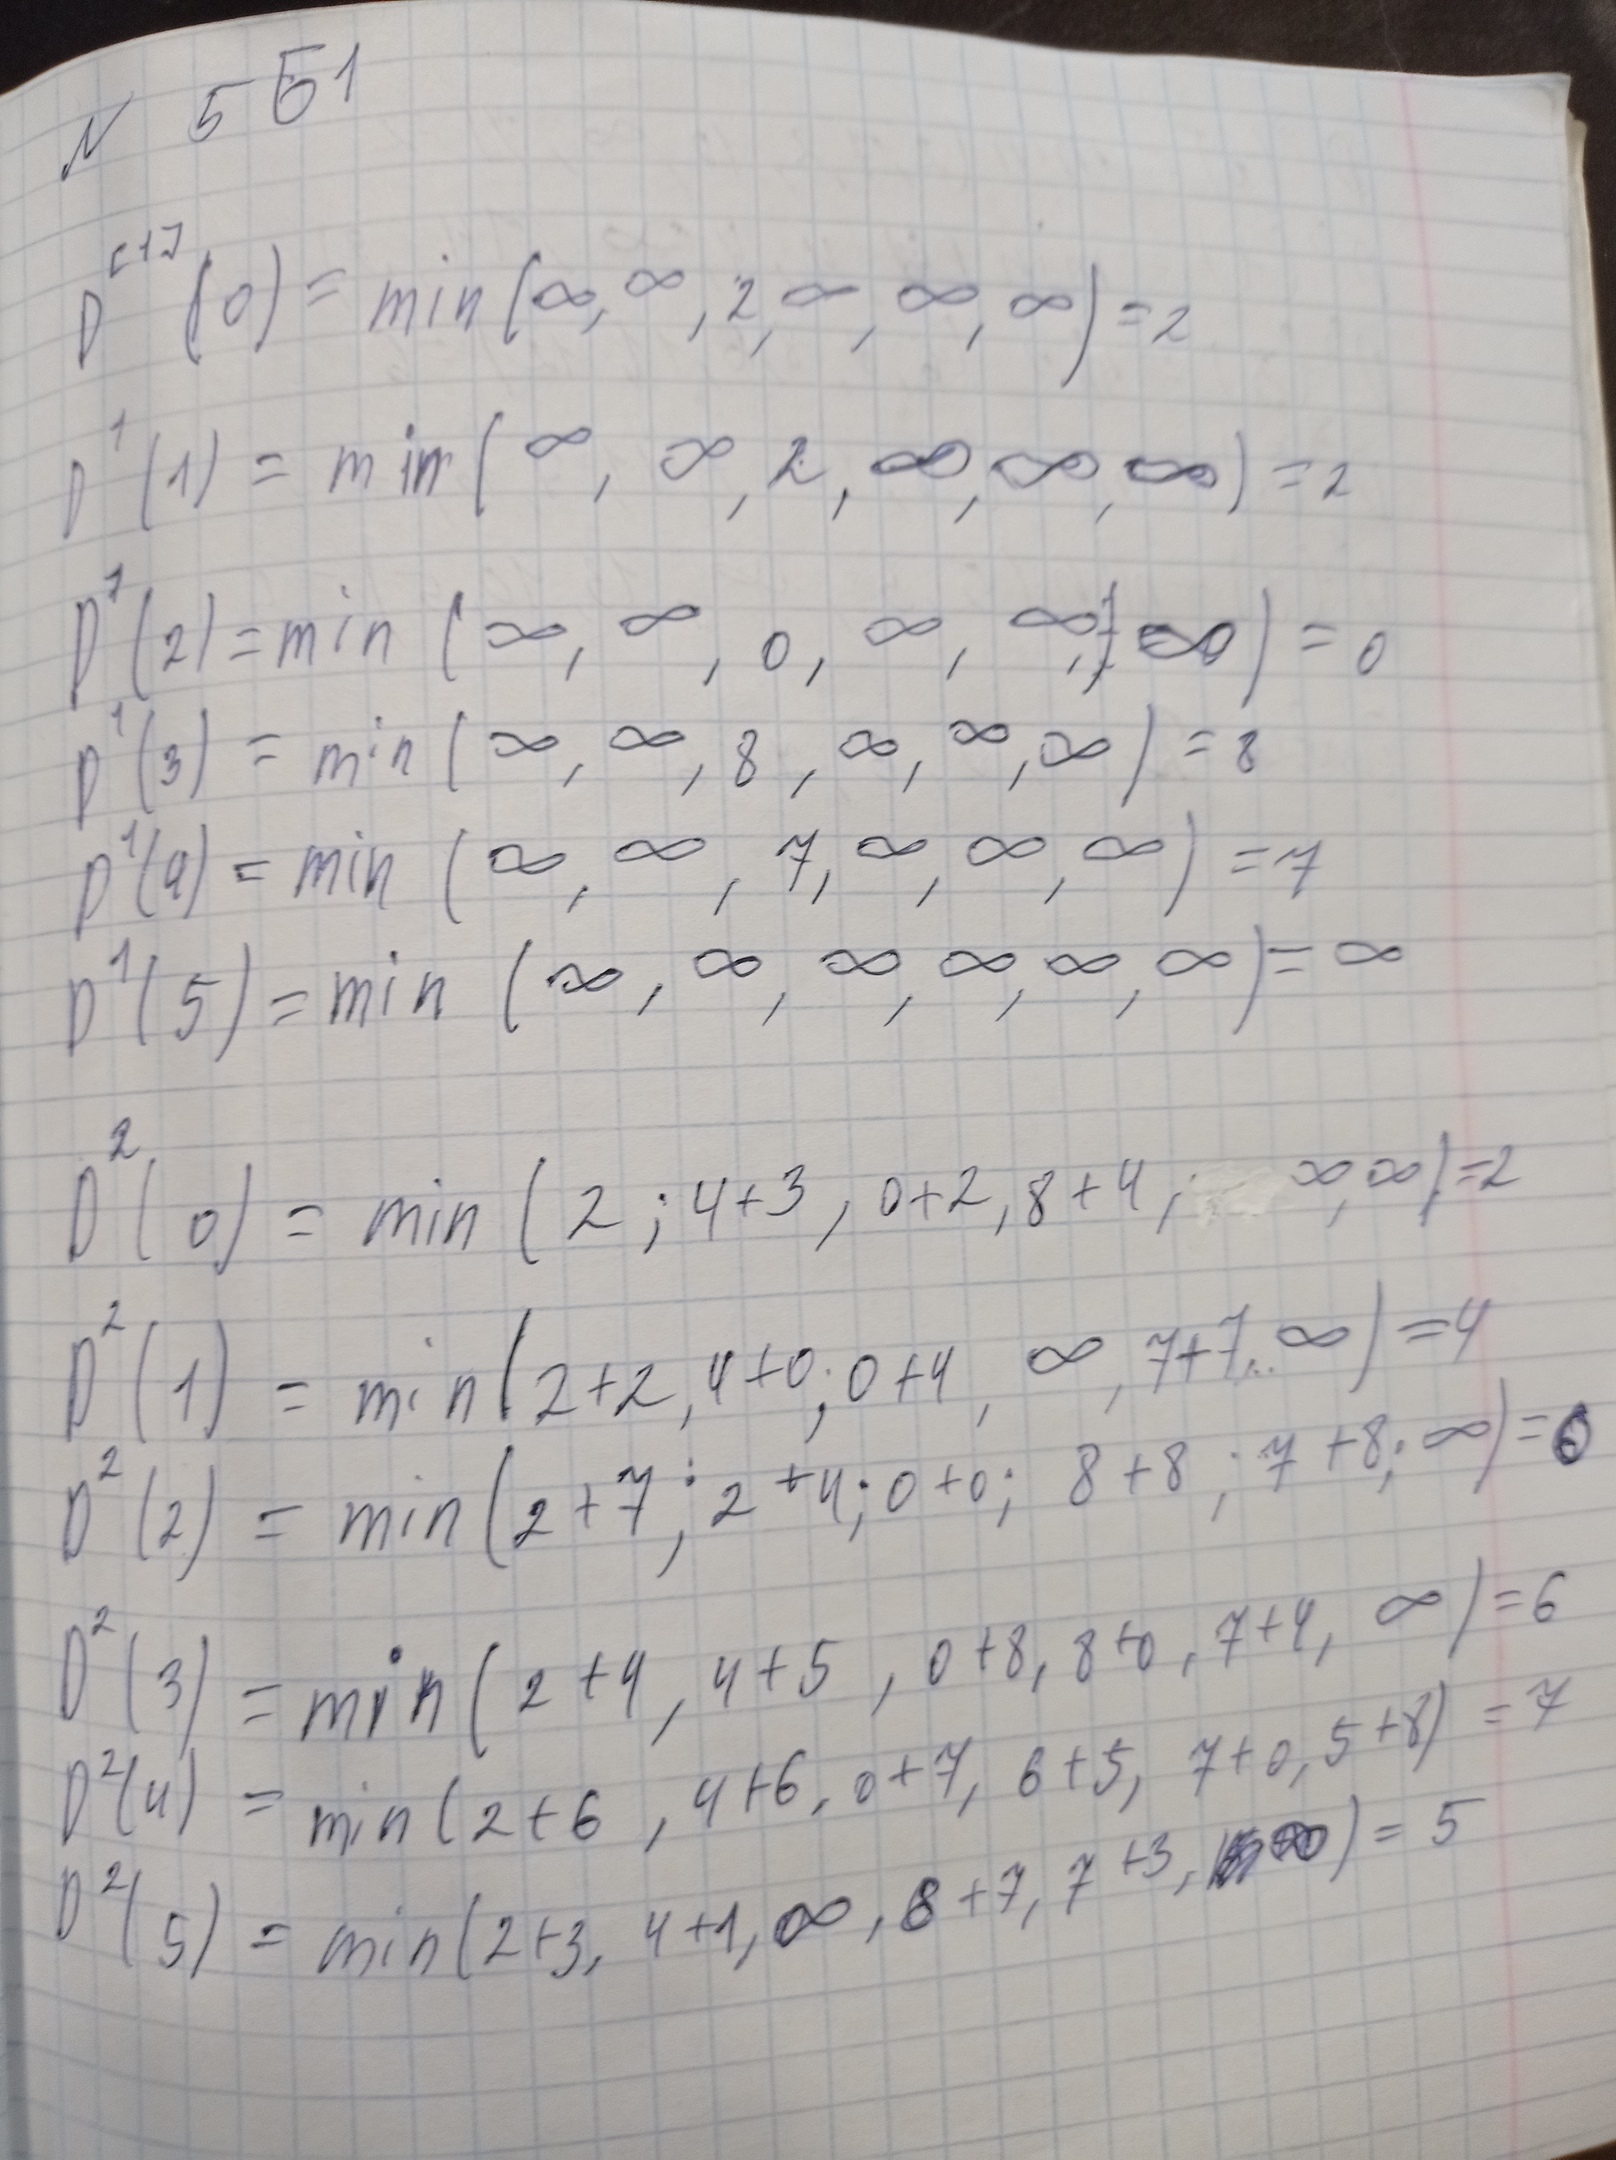 N 5 Б1
D^[1] (0) = min (∞, ∞, 2, ∞, ∞, ∞) = 2
D^1 (1) = min (∞, ∞, 2, ∞, ∞, ∞) = 2
D^1 (2) = min (∞, ∞, 0, ∞, ∞, ∞) = 0
D^1 (3) = min (∞, ∞, 8, ∞, ∞, ∞) = 8
D^1 (4) = min (∞, ∞, 7, ∞, ∞, ∞) = 7
D^1 (5) = min (∞, ∞, ∞, ∞, ∞, ∞) = ∞
D^2 (0) = min (2; 4+3, 0+2, 8+4; ∞, ∞) = 2
D^2 (1) = min (2+2, 4+0; 0+4, ∞, 7+7, ∞) = 4
D^2 (2) = min (2+7; 2+4; 0+0; 8+8; 7+8; ∞) = 0
D^2 (3) = min (2+4, 4+5, 0+8, 8+0, 7+4, ∞) = 6
D^2 (4) = min (2+6, 4+6, 0+7, 6+5, 7+0, 5+8) = 7
D^2 (5) = min (2+3, 4+1, ∞, 8+7, 7+3, ∞) = 5